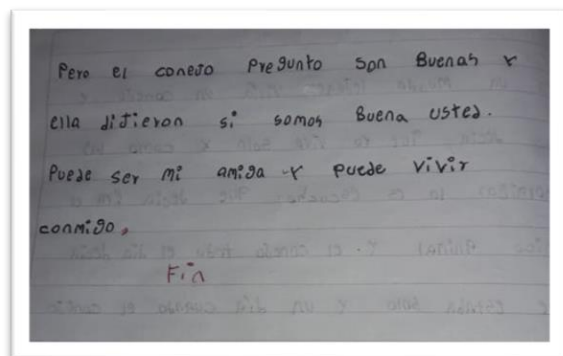 Pero el conejo Pregunto son Buenas y
ella dijieron si somos Buena usted.
Puede ser mi amiga y puede vivir
conmigo.
Fin